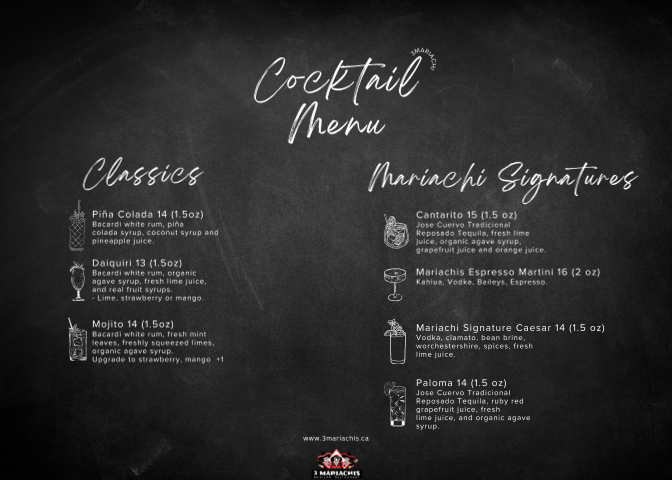 3MARIACHI
Cocktail
Menu
Classics
Piña Colada 14 (1.5oz)
Bacardi white rum, piña
colada syrup, coconut syrup and
pineapple juice.
Daiquiri 13 (1.5oz)
Bacardi white rum, organic
agave syrup, fresh lime juice,
and real fruit syrups.
- Lime, strawberry or mango.
Mojito 14 (1.5oz)
Bacardi white rum, fresh mint
leaves, freshly squeezed limes,
organic agave syrup.
Upgrade to strawberry, mango +1
Mariachi Signatures
Cantarito 15 (1.5 oz)
Jose Cuervo Tradicional
Reposado Tequila, fresh lime
juice, organic agave syrup,
grapefruit juice and orange juice.
Mariachis Espresso Martini 16 (2 oz)
Kahlua, Vodka, Baileys, Espresso.
Mariachi Signature Caesar 14 (1.5 oz)
Vodka, clamato, bean brine,
worchestershire, spices, fresh
lime juice.
Paloma 14 (1.5 oz)
Jose Cuervo Tradicional
Reposado Tequila, ruby red
grapefruit juice, fresh
lime juice, and organic agave
syrup.
www.3mariachis.ca
3 MARIACHIS